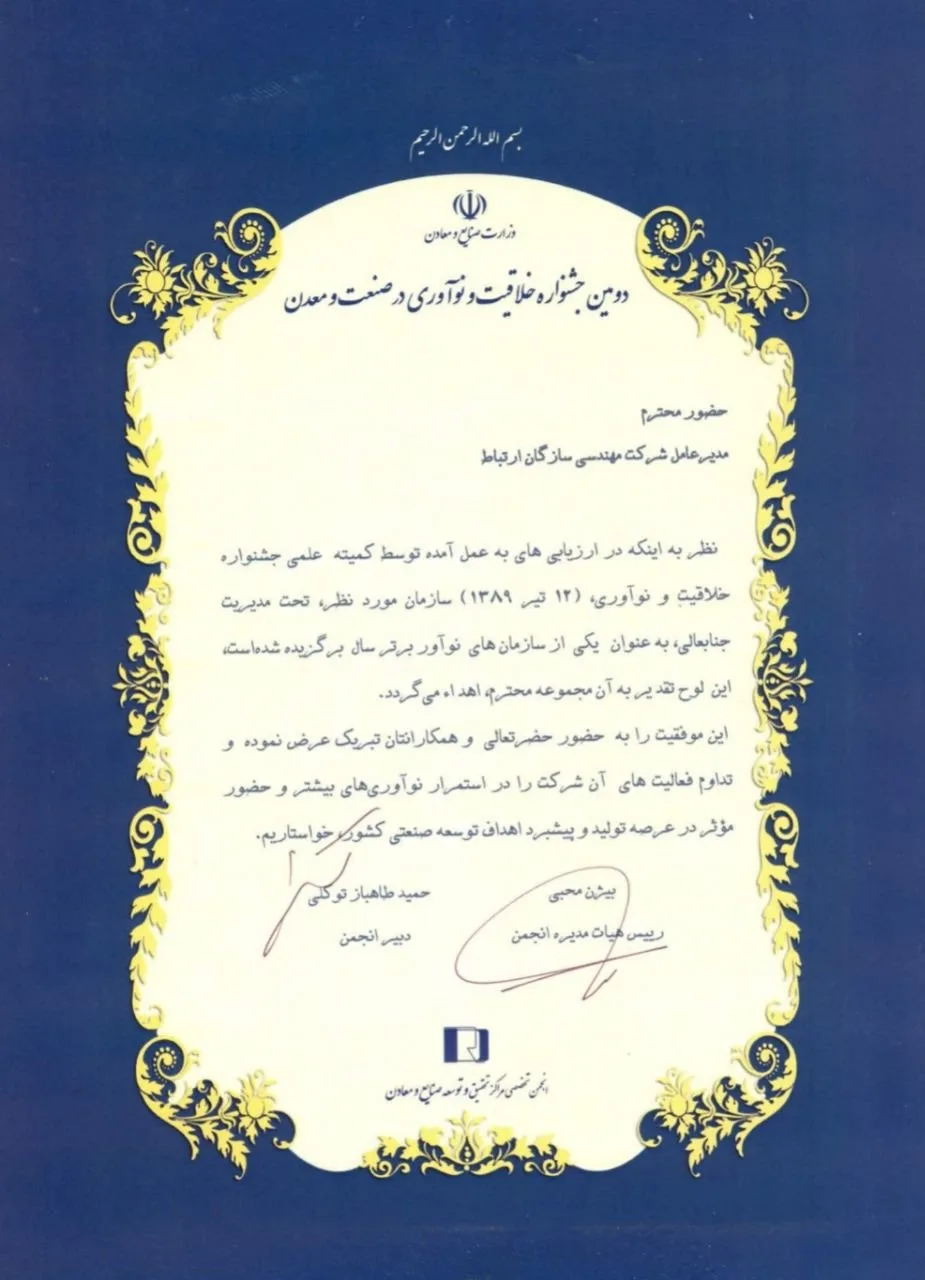 بسم الله الرحمن الرحیم
وزارت صنایع و معادن
دومین جشنواره خلاقیت و نوآوری در صنعت و معدن
حضور محترم
مدیرعامل شرکت مهندسی سازگان ارتباط
نظر به اینکه در ارزیابی های به عمل آمده توسط کمیته علمی جشنواره
خلاقیت و نوآوری، (۱۲ تیر ۱۳۸۹) سازمان مورد نظر، تحت مدیریت
جنابعالی، به عنوان یکی از سازمان‌های نوآور برتر سال برگزیده شده‌است،
این لوح تقدیر به آن مجموعه محترم، اهداء می‌گردد.
این موفقیت را به حضور حضرتعالی و همکارانتان تبریک عرض نموده و
تداوم فعالیت های آن شرکت را در استمرار نوآوری‌های بیشتر و حضور
مؤثر در عرصه تولید و پیشبرد اهداف توسعه صنعتی کشور، خواستاریم.
بیژن محبی
حمید طاهباز توکلی
رییس هیات مدیره انجمن
دبیر انجمن
انجمن تخصصی مراکز تحقیق و توسعه صنایع و معادن